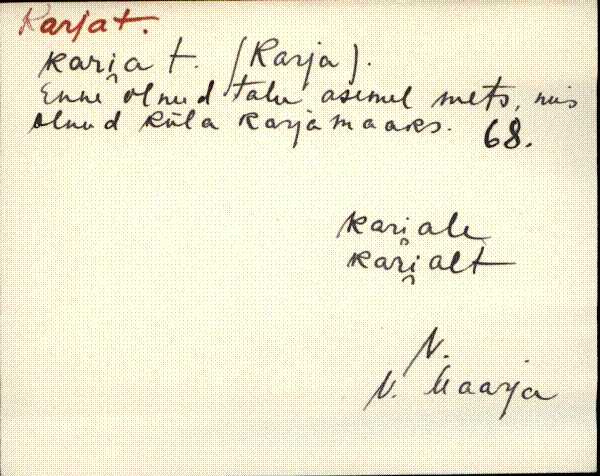 Karja t.
kari̯a t. (Karja).
Enne olnud talu asemel mets, mis
olnud küla karjamaaks. 68.
kari̯ale
kari̯alt
N.
V. Maarja